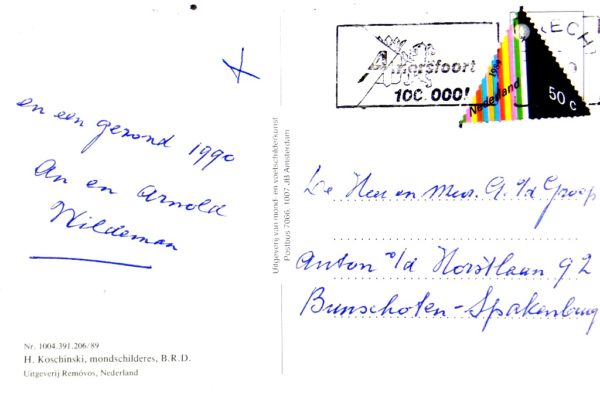 en een gezond 1990
An en Arnold
Wildeman
Nr. 1004.391.206/89
H. Koschinski, mondschilderes, B.R.D.
Uitgeverij Removos, Nederland
Uitgeverij van mond- en voetschilderkunst
Postbus 7066, 1007 JB Amsterdam
Amersfoort
100.000!
1989
Nederland
50 c
De Heer en Mevr. G. v/d Groep
Anton v/d Horstlaan 92
Bunschoten-Spakenburg